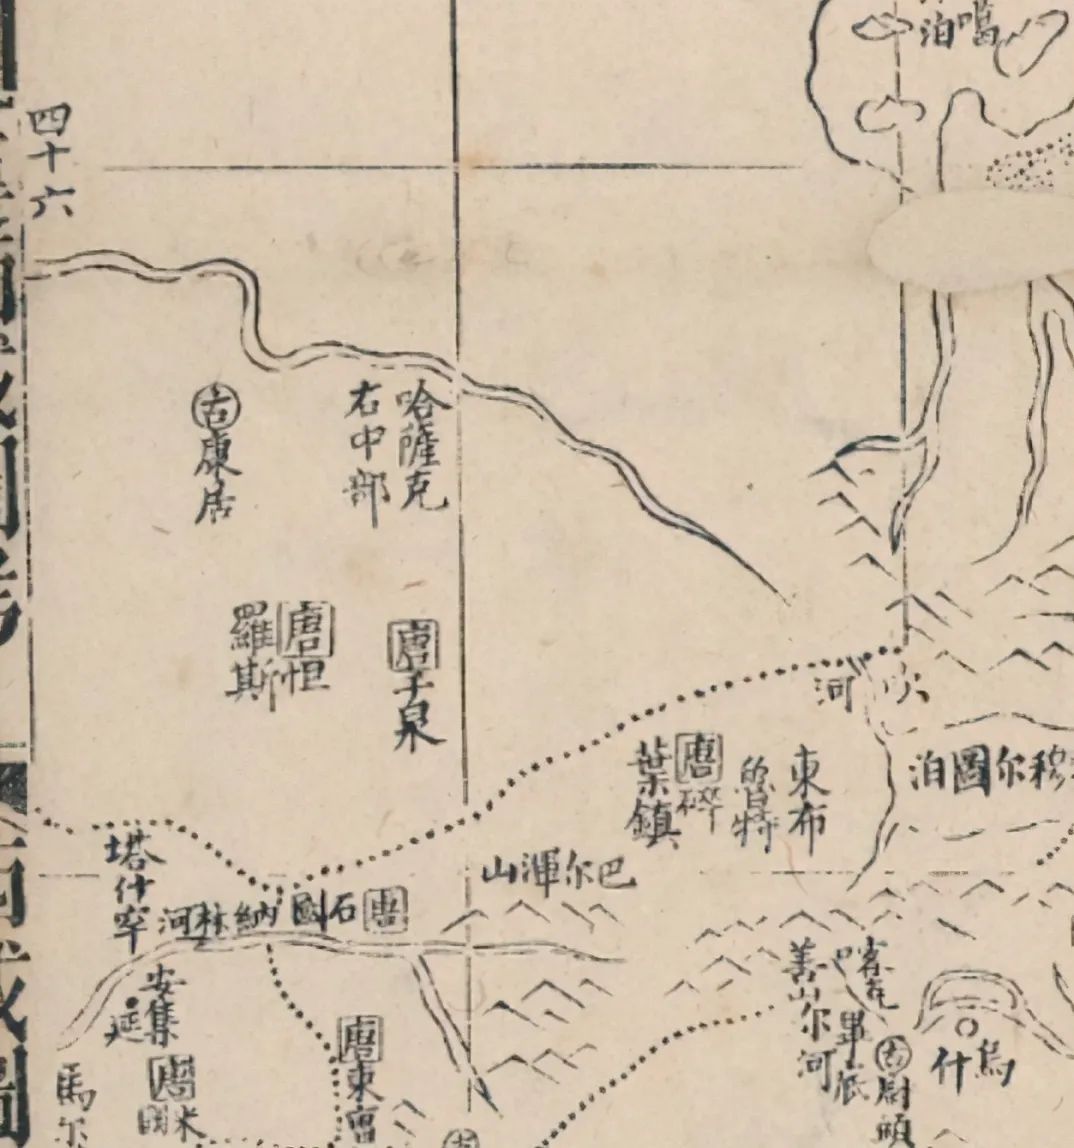 泊噶
四十六
哈薩克
右中部
古康居
唐千泉
唐怛
羅斯
吹河
泊圖尔穆
東布
魯特
唐碎
葉鎮
山渾尔巴
塔什罕
唐石國
納林河
安集
延
唐東曹
唐米國
馬尔
喀克
善山尔河
畢底
古尉頭
烏什
古